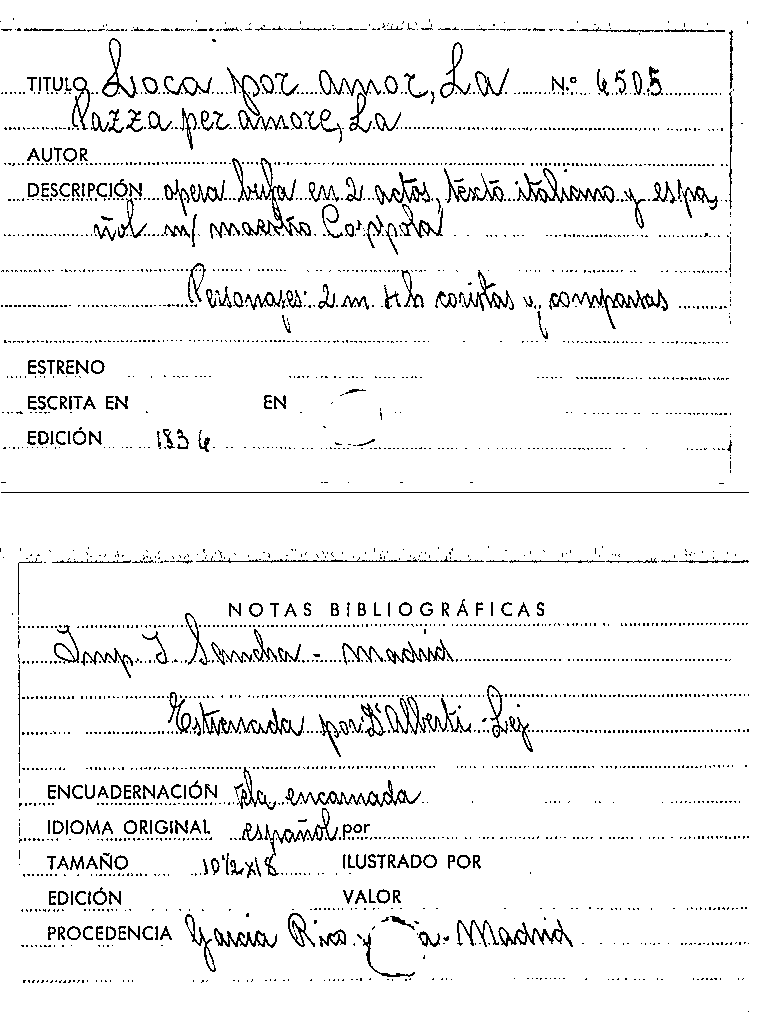 TITULO Loca por amor, La N.º 6505
Pazza per amore, La
AUTOR
DESCRIPCIÓN opera bufa en 2 actos, texto italiano y espa,
ñol m/ maestro Coppola
Personajes: 2 m. 4 h coristas y comparsas
ESTRENO
ESCRITA EN EN
EDICIÓN 1836
NOTAS BIBLIOGRÁFICAS
Imp. I. Sancha - Madrid
Estrenada por D'Alberti - Lej
ENCUADERNACIÓN tela encarnada
IDIOMA ORIGINAL español por
TAMAÑO 10½x18 ILUSTRADO POR
EDICIÓN VALOR
PROCEDENCIA García Rico y a - Madrid